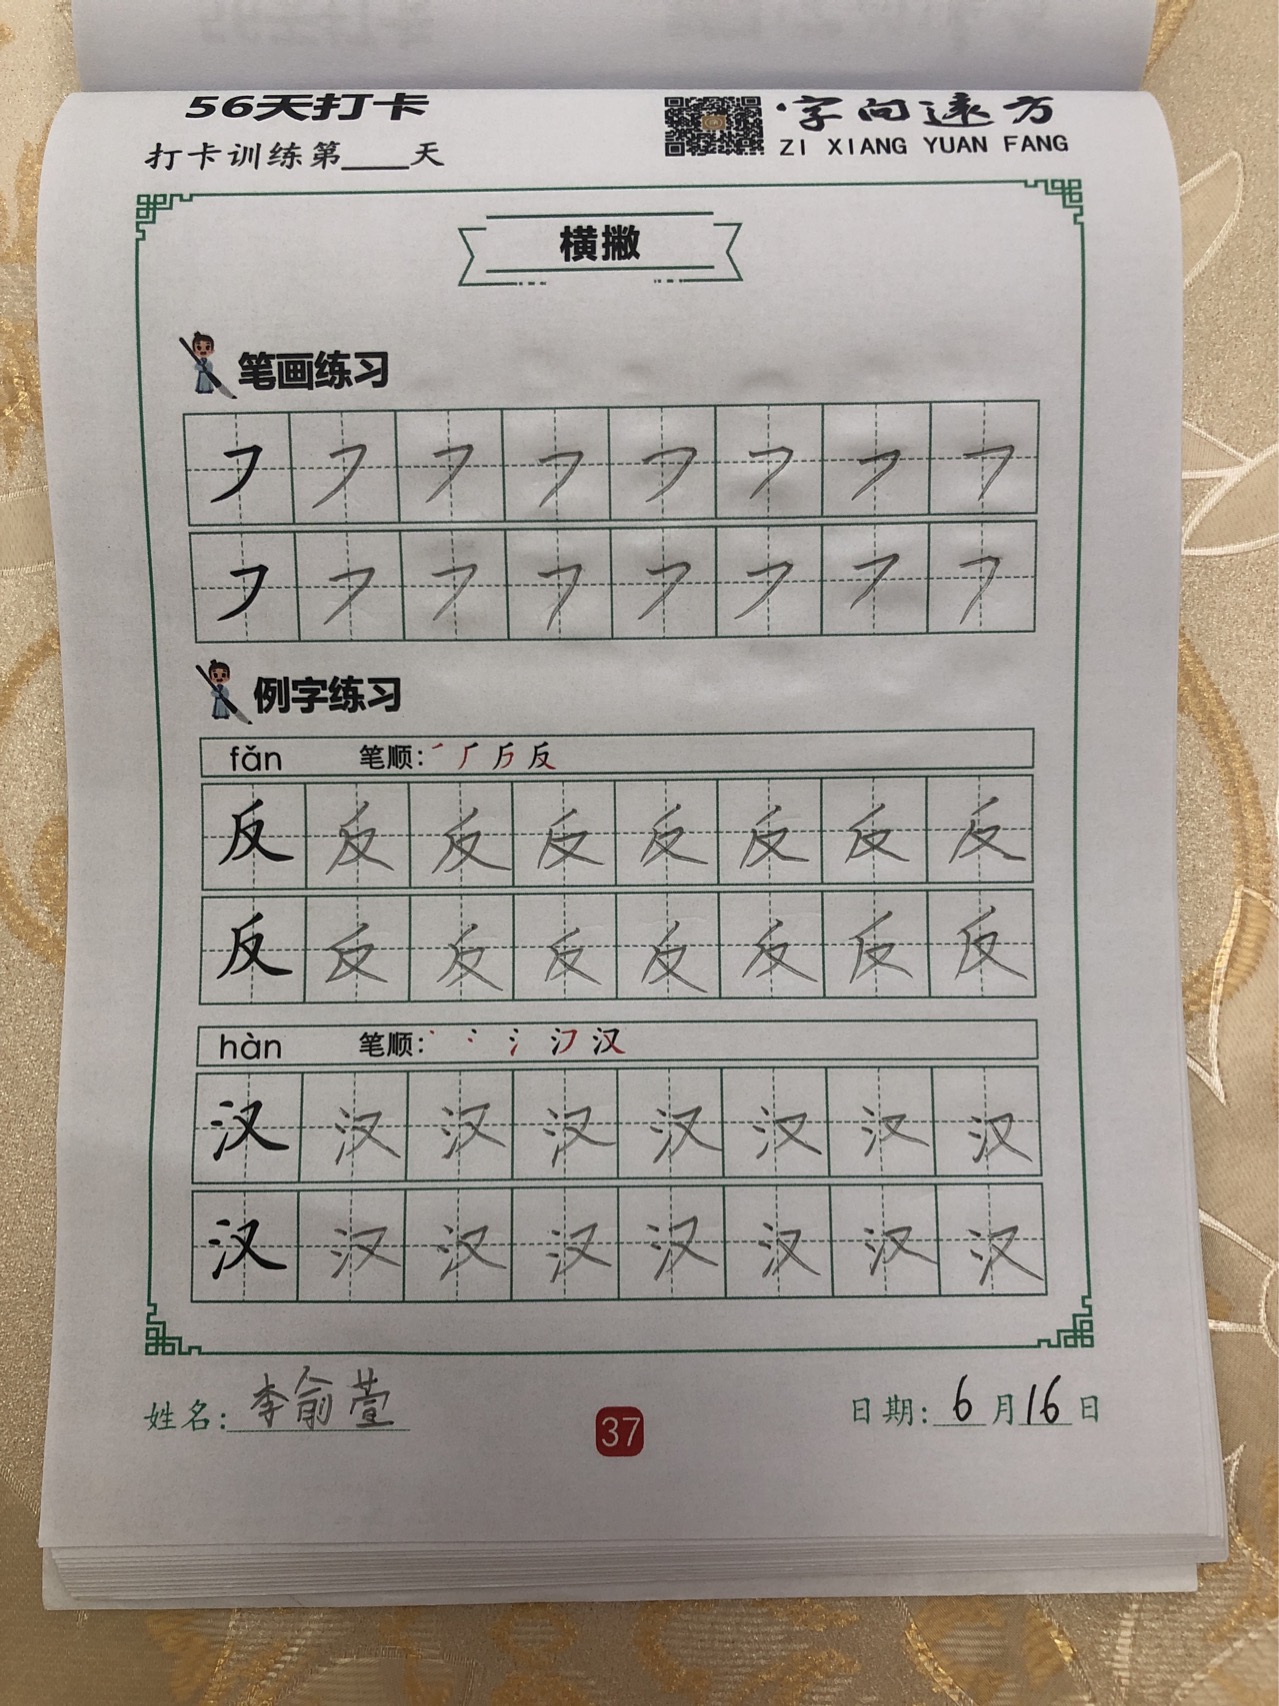 56天打卡
字向远方
打卡训练第___天
ZI XIANG YUAN FANG
横撇
笔画练习
㇇ ㇇ ㇇ ㇇ ㇇ ㇇ ㇇ ㇇
㇇ ㇇ ㇇ ㇇ ㇇ ㇇ ㇇ ㇇
例字练习
fǎn 笔顺: ㇒ 厂 反
反 反 反 反 反 反 反 反
反 反 反 反 反 反 反 反
hàn 笔顺: 丶 冫 氵 汉
汉 汉 汉 汉 汉 汉 汉 汉
汉 汉 汉 汉 汉 汉 汉 汉
姓名: 李俞萱
37
日期: 6月16日